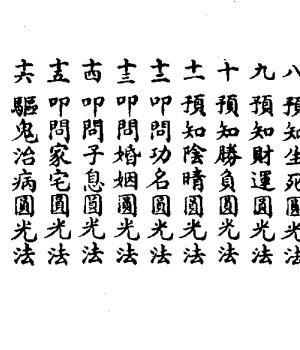 八 預知生死圓光法
九 預知財運圓光法
十 預知勝負圓光法
十一 預知陰晴圓光法
十二 叩問功名圓光法
十三 叩問婚姻圓光法
十四 叩問子息圓光法
十五 叩問家宅圓光法
十六 驅鬼治病圓光法